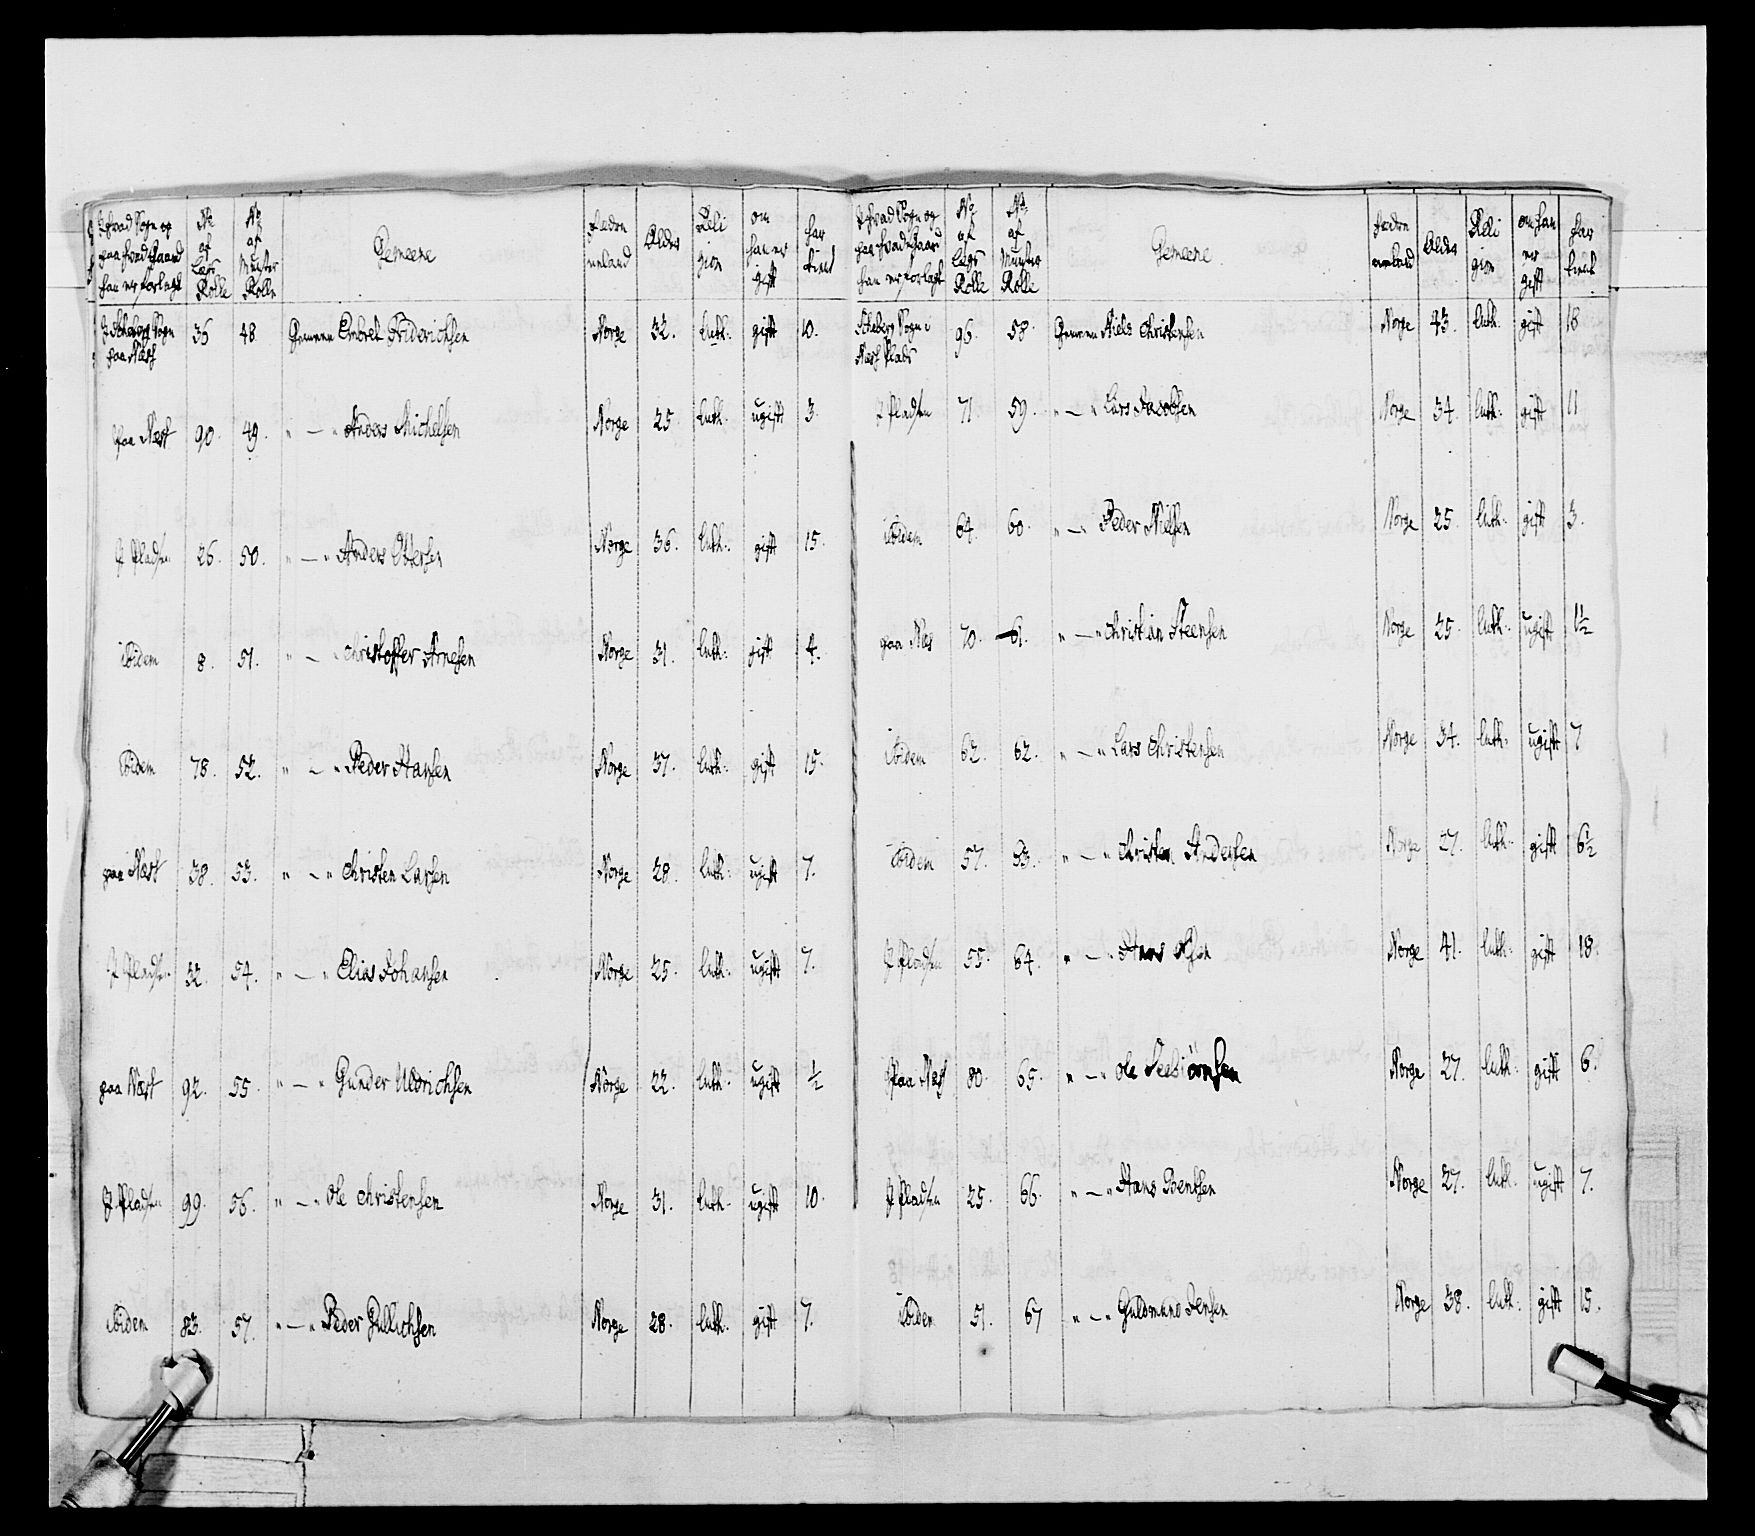 I hvad Sogn og paa hvad Gaard han er forlagt | No af Lægs Rolle | No af Munster Rolle | Gemeene | Fædrenneland | Alder | Religion | om han er gift | har tient
I Scheberg Sogn paa Næst | 36 | 48 | Gemeen Embret Friderichsen | Norge | 32. | Luth. | gift | 10.
paa Næst | 90. | 49. | " — " Anders Michelsen | Norge | 25. | Luth. | ugift | 3.
I Pladsen | 26. | 50. | " — " Anders Ottersen | Norge | 36. | luth. | gift | 15.
ibidem | 8. | 51. | " — " Christoffer Arnesen | Norge | 31. | luth. | gift | 4.
ibidem | 78. | 52. | " — " Peder Hansen | Norge | 37. | luth. | gift | 15.
paa Næst | 38. | 53. | " — " Christen Larsen | Norge | 28. | luth. | ugift | 7.
I Pladsen | 32. | 54. | " — " Elias Johansen | Norge | 25. | luth. | ugift | 7.
paa Næst | 92. | 55. | " — " Gunder Uldrichsen | Norge | 22. | luth. | ugift | ½
I Pladsen | 99. | 56. | " — " Ole Christensen | Norge | 31. | luth. | ugift | 10.
ibidem | 83. | 57. | " — " Peder Gullichsen | Norge | 28. | luth. | gift | 7.
I hvad Sogn og paa hvad Gaard han er forlagt | No af Lægs Rolle | No af Munster Rolle | Gemeene | Fædrenneland | Alder | Religion | om han er gift | har tient
Scheberg Sogn i Næst Plads | 96. | 58. | Gemeen Niels Christensen | Norge | 43. | luth. | gift | 18
I Pladsen | 71. | 59. | " — " Lars Jacobsen | Norge | 34. | luth. | gift | 11
ibidem | 64. | 60. | " — " Peder Nielsen | Norge | 25. | luth. | gift | 3.
paa Næs | 70. | 61. | " — " Christian Steensen | Norge | 25. | luth. | ugift | 1½
ibidem | 62. | 62. | " — " Lars Christensen | Norge | 34. | luth. | ugift | 7
ibidem | 57. | 53. | " — " Christen Andersen | Norge | 27. | luth. | gift | 6½
I Pladsen | 55. | 64. | " — " Hans Olsen | Norge | 41. | luth. | gift | 18.
paa Næst | 80. | 65. | " — " Ole | Norge | 27. | luth. | gift | 6.
I Pladsen | 25. | 66. | " — " Hans Bentsen | Norge | 27. | luth. | ugift | 7.
ibidem | 51. | 67 | " — " Guldmund Jensen | Norge | 38. | luth. | gift | 15.